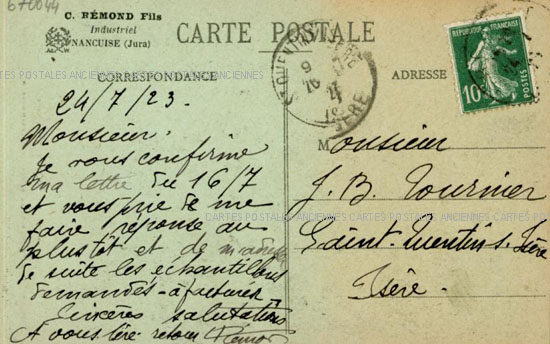 670044
C. RÉMOND Fils
Industriel
NANCUISE (Jura)
CARTE POSTALE
CORRESPONDANCE
ADRESSE
RÉPUBLIQUE FRANÇAISE
10
POSTES
St QUENTIN
ISÈRE
CARTES POSTALES ANCIENNES CARTES POSTALES ANCIENNES
24/7/23.
Monsieur.
Je vous confirme
ma lettre du 16/7
et vous prie de me
faire réponse au
plus tôt et de
de suite les échantillons
demandés - à facturer
Sincères salutations
A vous lire retour Rémond
Monsieur
J. B. Tournier
Saint-Quentin s. Isère
Isère.